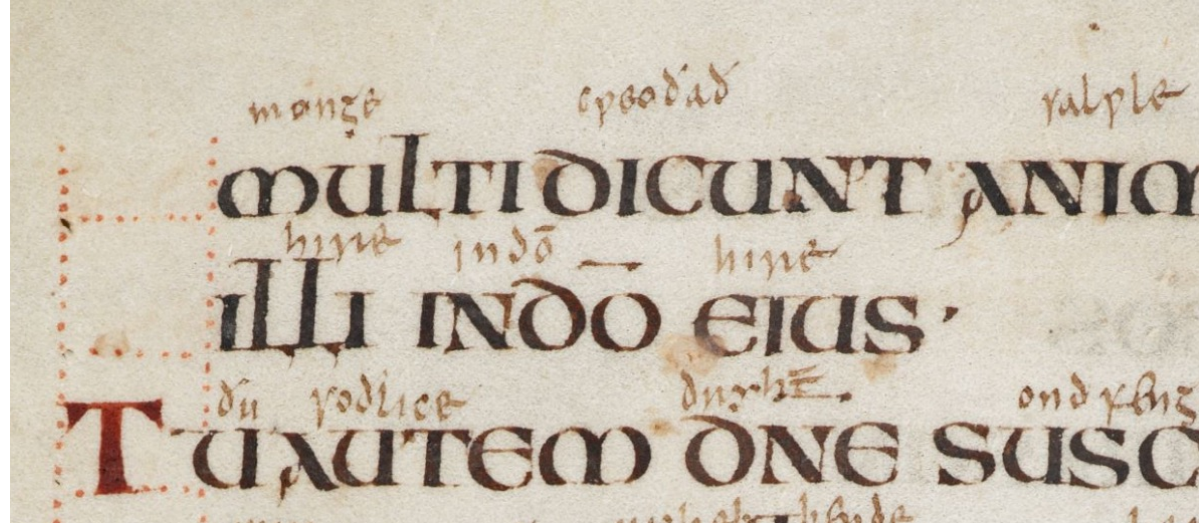 monge cƿeoðað salƿle
MULTI DICUNT ANIM
hire in dō hire
ILLI IN DŌ EIUS·
ðu soðlice dryht̄. ondfeng
TU AUTEM DNE SUSC